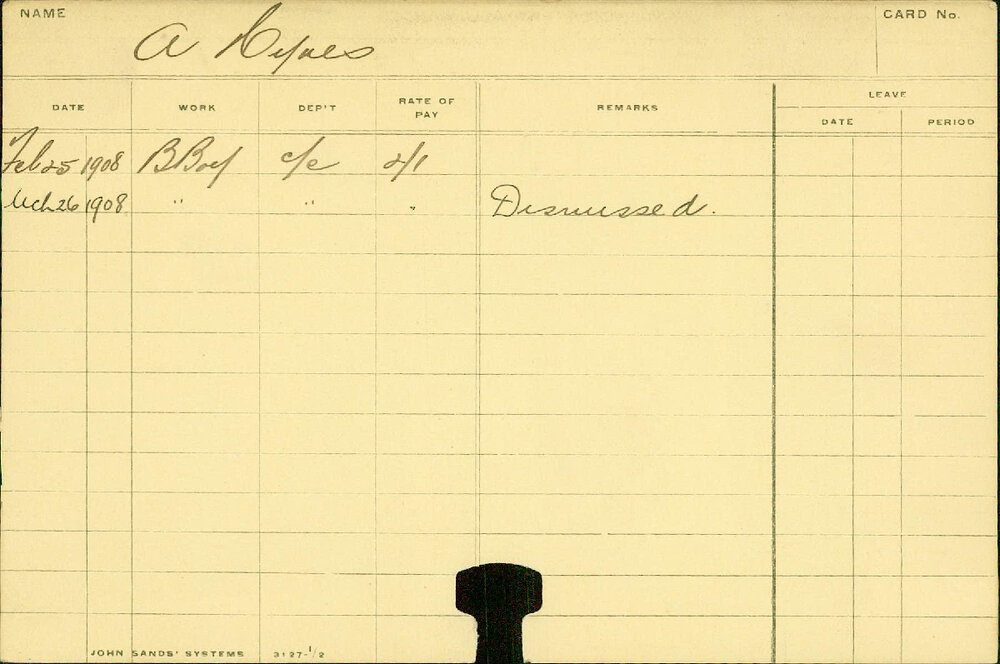 NAME
CARD No.
A Hynes
DATE WORK DEP'T RATE OF PAY REMARKS LEAVE
DATE PERIOD
Feb 25 1908 B Boy c/e 2/1
Mch 26 1908 " " " Dismissed.
JOHN SANDS' SYSTEMS 3127-1/2